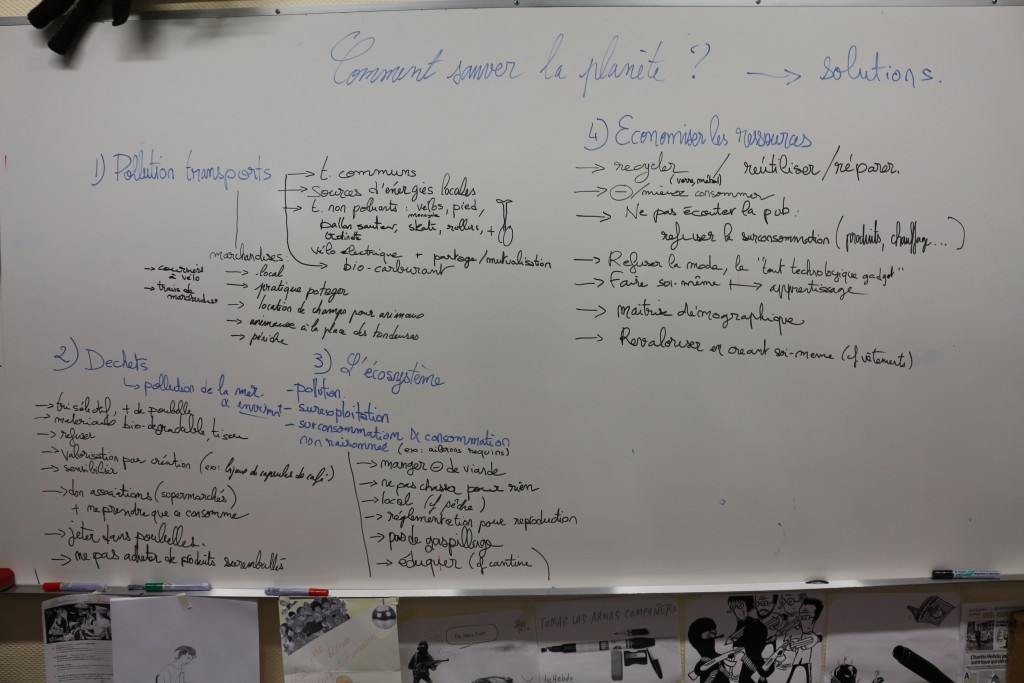 Comment sauver la planète ? → solutions.
1) Pollution transports
→ t. communs
→ sources d'énergies locales
→ t. non poluants : vélos, pied,
monocycle
ballon sauteur, skate, rollers, +
trotinette
vélo électrique + partage/mutualisation
→ bio-carburant
marchandises:
→ coursiers
à vélo
→ trains de
marchandises
→ local
→ pratique potager
→ location de champs pour animaux
→ animaux à la place des tondeuses
→ péniche
2) Dechets
↳ pollution de la mer
& environt
→ tri sélectif, + de poubelle
→ materiaux bio-dégradable, tissu
→ refuser
→ valorisation par création (exo: bijoux de capsules de café)
→ sensibiliser
→ don associations (supermarchés)
+ ne prendre que a consomme
→ jeter dans poubelles.
→ ne pas acheter de produits suremballés
3) L'écosystème
- pollution
- surexploitation
- surconsommation & consommation
non raisonnée (exo: ailerons requins)
→ manger ⊖ de viande
→ ne pas chasser pour rien
→ local (cf pêche)
→ réglementation pour reproduction
→ pas de gaspillage
→ éduquer (cf cantine)
4) Economiser les ressources
→ recycler / réutiliser/réparer.
(verre, métal)
→ ⊖/mieux consommer
→ Ne pas écouter la pub:
refuser la surconsommation (produits, chauffage...)
→ Refuser la mode, le "tout technologique gadget"
→ Faire soi-même → apprentissage
→ maîtrise démographique
→ Revaloriser en créant soi-même (cf vêtements)
TOMAR LAS ARMAS COMPAÑERO
Charlie Hebdo